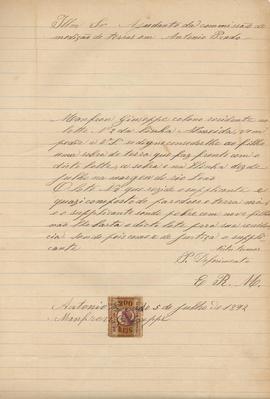 Illm Sr Ajudante da commissão de
medição de terras em Antonio Prado
Manfron Giuseppe colono residente no
lote Nº 2 da linha Almeida, vem
pedir a V.S. se digne conceder lhe
uma sobra de terra que faz frente com o
dito lote, a sobra e na linha dez de
julho na margem do rio
O lote Nº que rezide o suplicante e
quazi composto de paredoes e terra má
e o supplicante sendo pobre com nove filhos
não lhe basta o dito lote para sua
cia por de ser de justiça o suppli
cante
P. Deferimento
E. R. M.
Antonio Prado 5 de Julho de 1892
Manfron Giuseppe
200
REIS